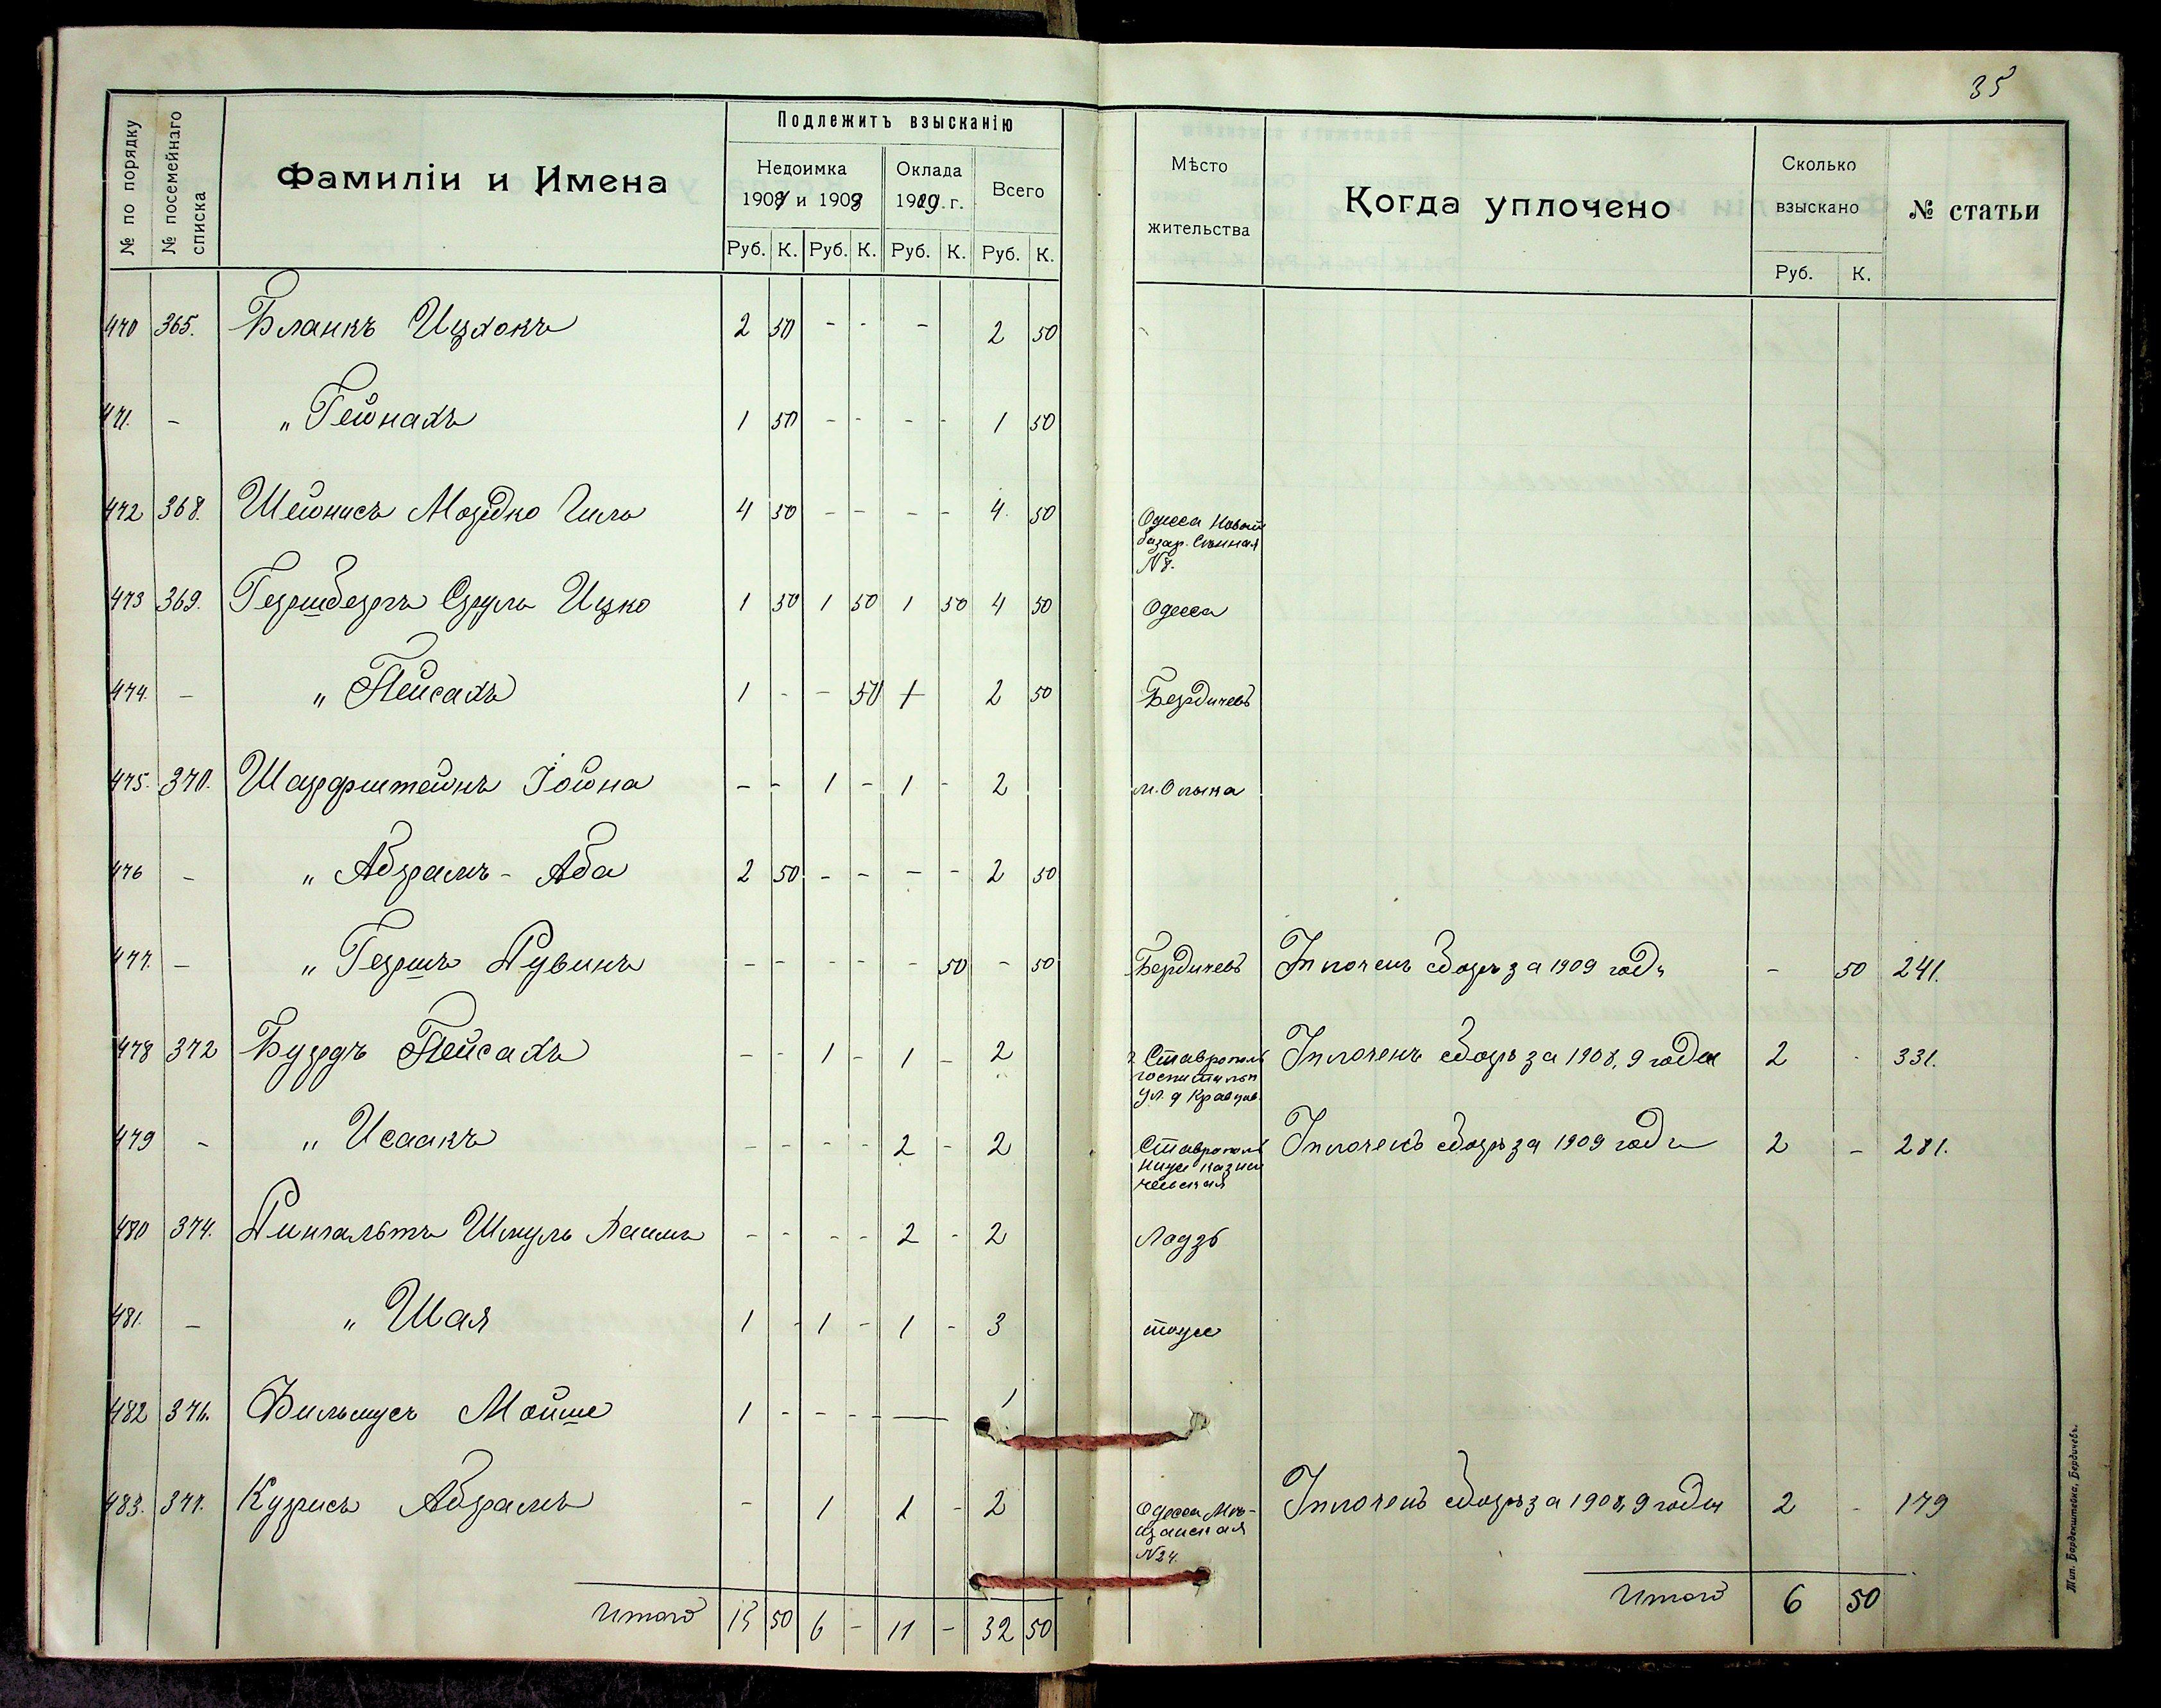 35
№ по порядку
№ посемейнаго списка
Фамиліи и Имена
Подлежитъ взысканію
Недоимка 1907 и 1908
Оклада 1909 г.
Всего
Руб. К. Руб. К. Руб. К. Руб. К.
Мѣсто жительства
Когда уплочено
Сколько взыскано
Руб. К.
№ статьи
470 365. Бланкъ Ицхокъ 2 50 - - - 2 50
471. - " Гейнахъ 1 50 - - - - 1 50
472 368. Шейнисъ Мордко Гиль 4 50 - - - - 4 50 Одесса Новый
базар. Сѣнная
№ 8.
473 369. Гершбергъ Сруль Ицко 1 50 1 50 1 50 4 50 Одесса
474. - " Пейсахъ 1 - - 50 1 2 50 Бердичевъ
475. 370. Шарфштейнъ Іойна - - 1 - 1 - 2 м. Олыка
476 - " Абрамъ - Аба 2 50 - - - - 2 50
477. - " Гершъ Рувинъ - - - - - 50 - 50 Бердичевъ Уплоченъ сборъ за 1909 годъ - 50 241.
478 372 Бурдъ Пейсахъ - - 1 - 1 - 2 г Ставрополь Уплоченъ сборъ за 1908, 9 годы 2 - 331.
госпитальн
ул. д Кравцов.
479 - " Исаакъ - - - - 2 - 2 Ставрополь Уплоченъ сборъ за 1909 годъ 2 - 281.
480 374. Рингальтъ Шмуль Хаимъ - - - - 2 - 2 Лодзь
481. - " Шая 1 - 1 - 1 - 3 тоже
482 376. Вильмусъ Мойше 1 - - - - 1
483. 377. Курисъ Абрамъ - 1 1 - 2 Одесса Мѣ- Уплоченъ сборъ за 1908, 9 годы 2 - 179
щанская
№ 24.
Итого 15 50 6 - 11 - 32 50
Итого 6 50
Тип. Барденштейна, Бердичевъ.